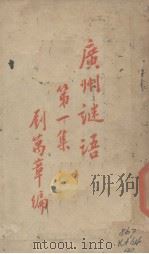 廣州謎語
第一集
劉萬章編
867